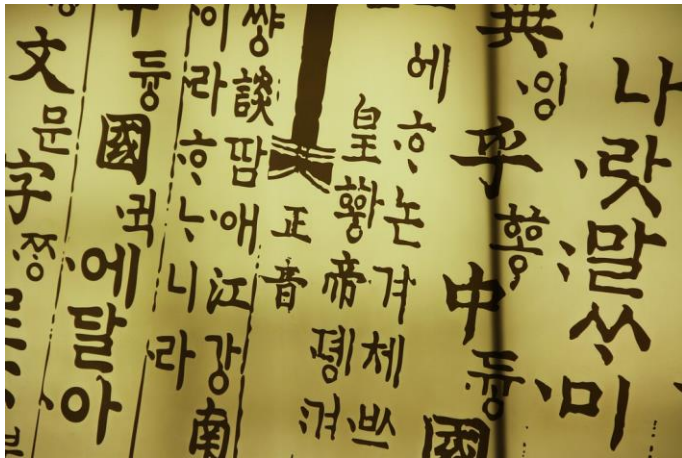 나랏말ᄊᆞ미
異잉乎ᅘᅩᆼ中듕國
에ᄒᆞ논겨체ᄡᅳ
皇황帝뎽겨
正音
썅談땀애江강南
이라ᄒᆞᄂᆞ니라
듕國귁에달아
文문字ᄍᆞᆼ